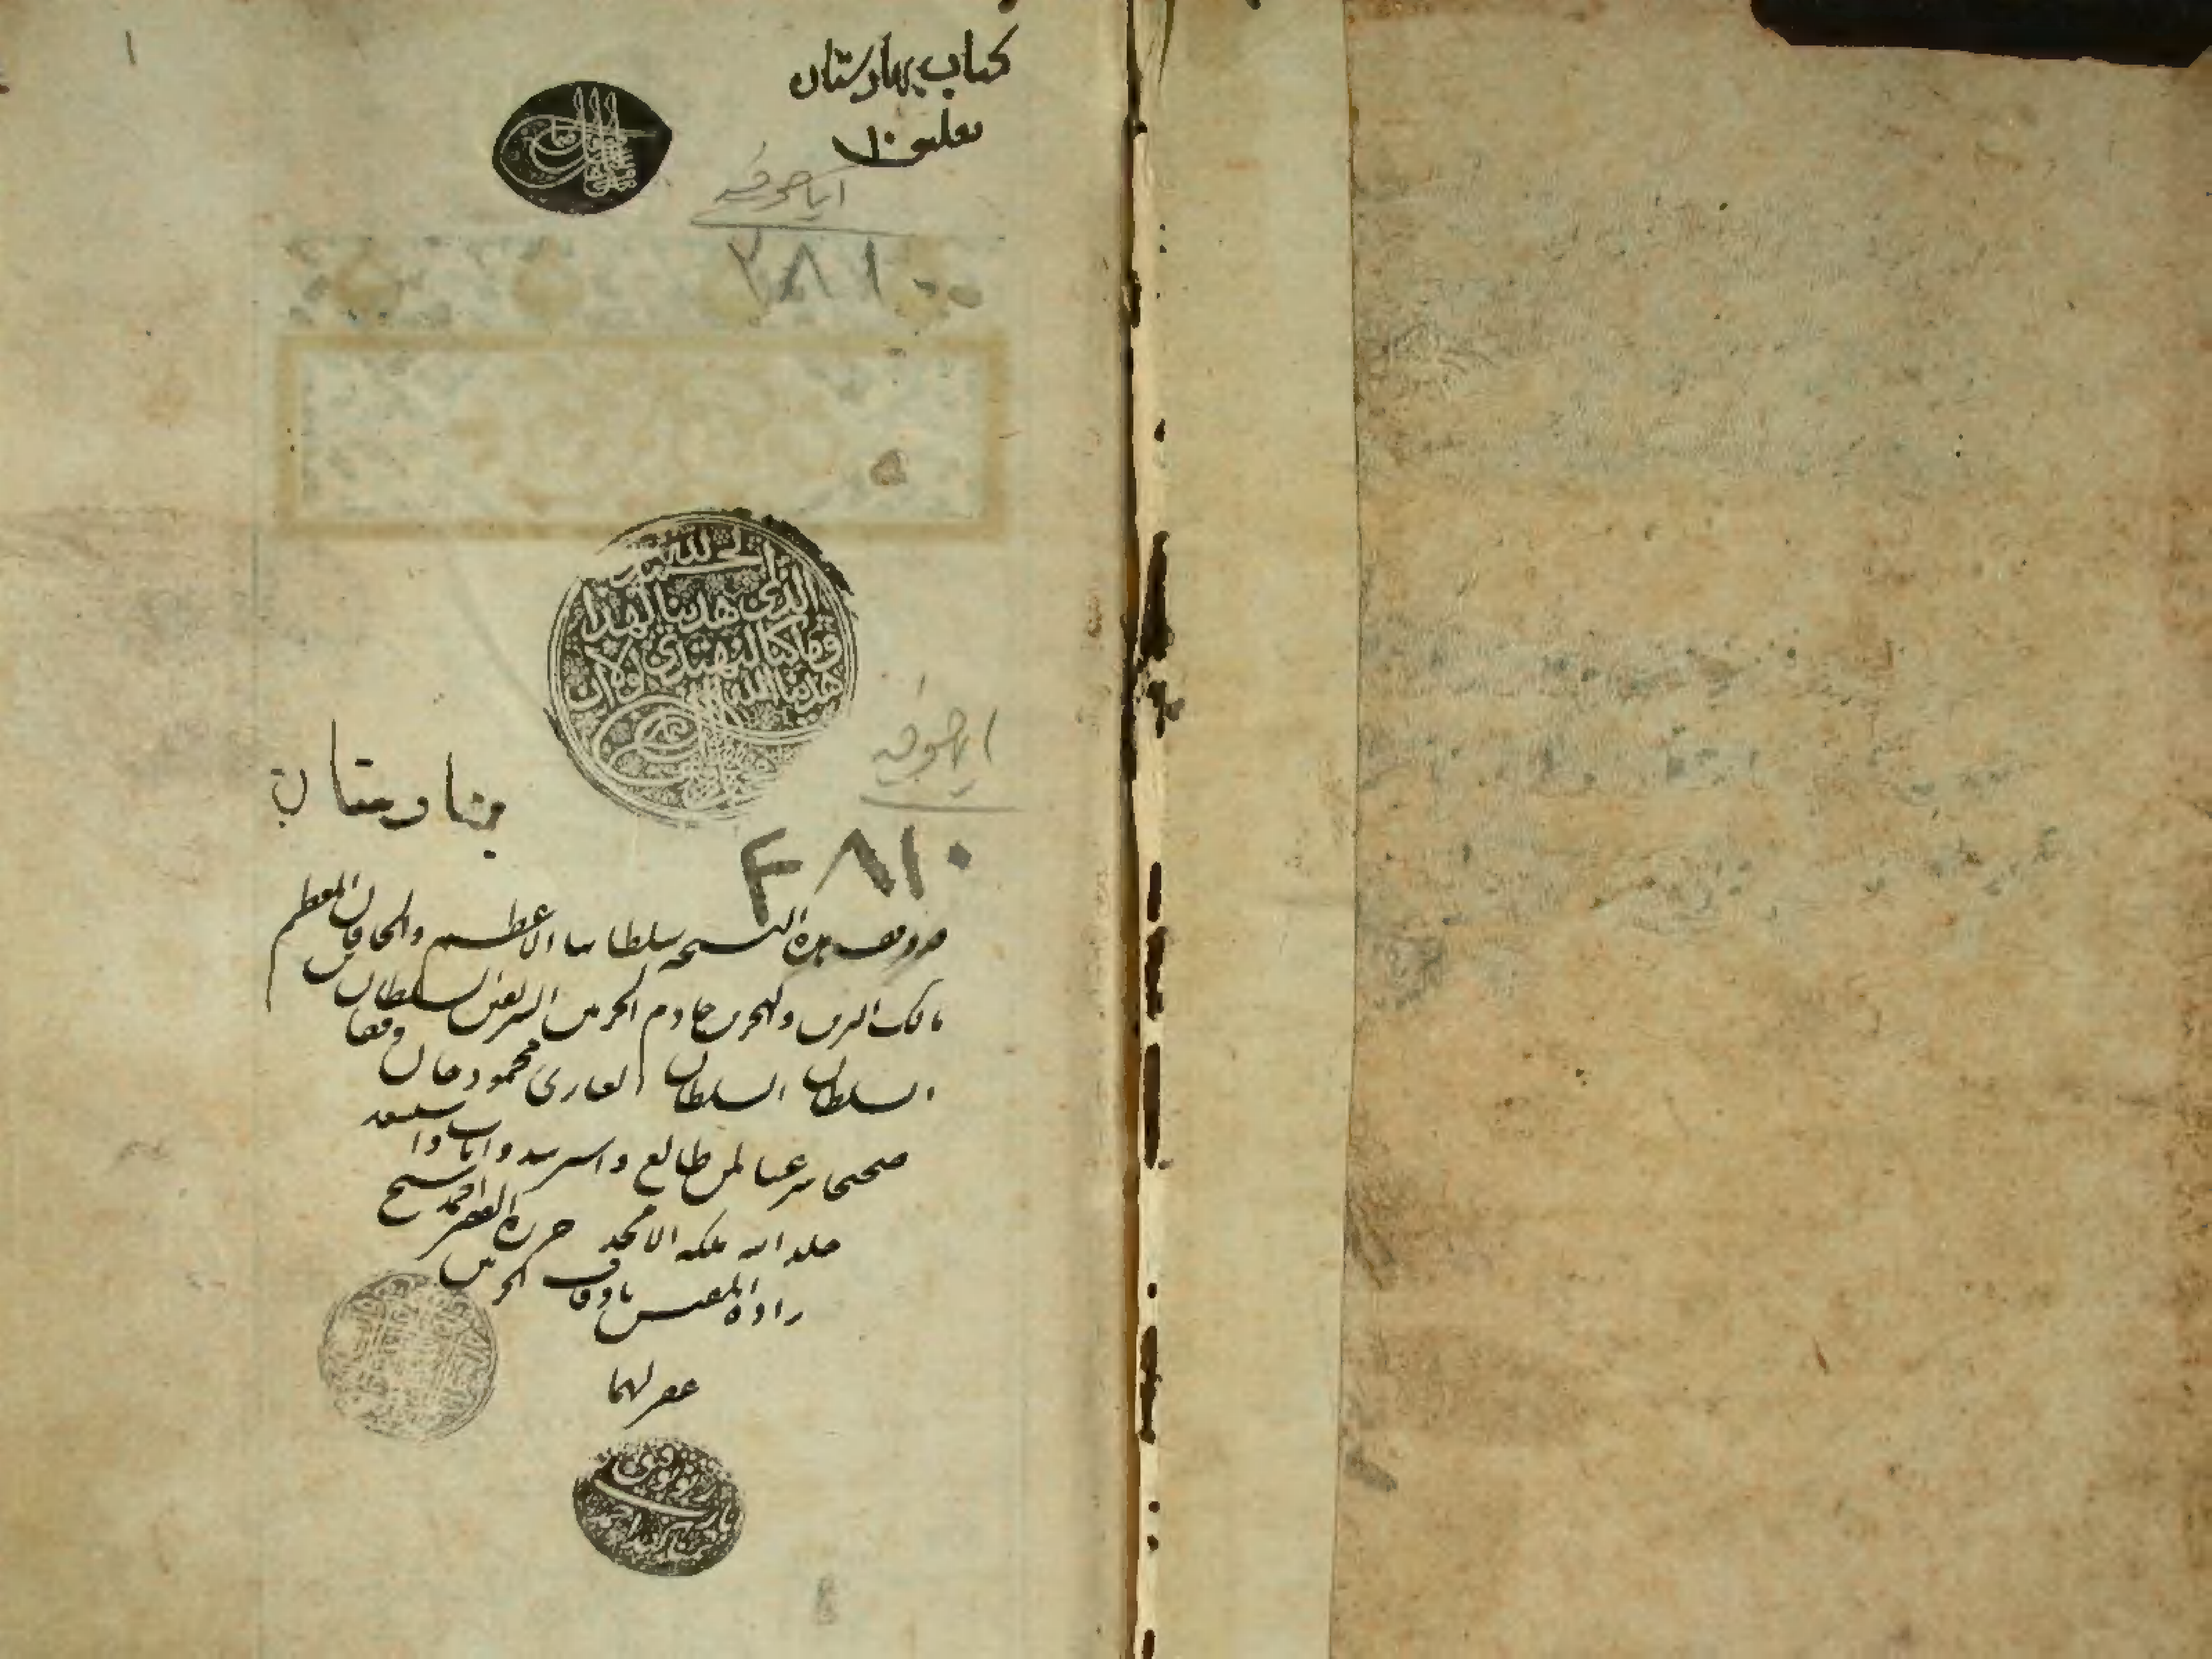 ١
كتاب بهارستان
تعليق ١٠
اياصوفيه
٣٨١٠
الحمد لله
الذي هدينا لهذا
وما كنا لنهتدي لولا ان
هدينا الله
اياصوفيه
٣٨١٠
بهارستان
قد وقف هذه النسخه سلطاننا الاعظم والخاقان المعظم
مالك البرين والبحرين خادم الحرمين الشريفين السلطان بن
السلطان السلطان الغازى محمود خان وقفا
صحيحا شرعيا لمن طالع واسترشد واناب واستسعد
خلد الله ملكه الامجد حرره الفقير احمد شيخ
زاده المفتش باوقاف الحرمين
غفر لهما